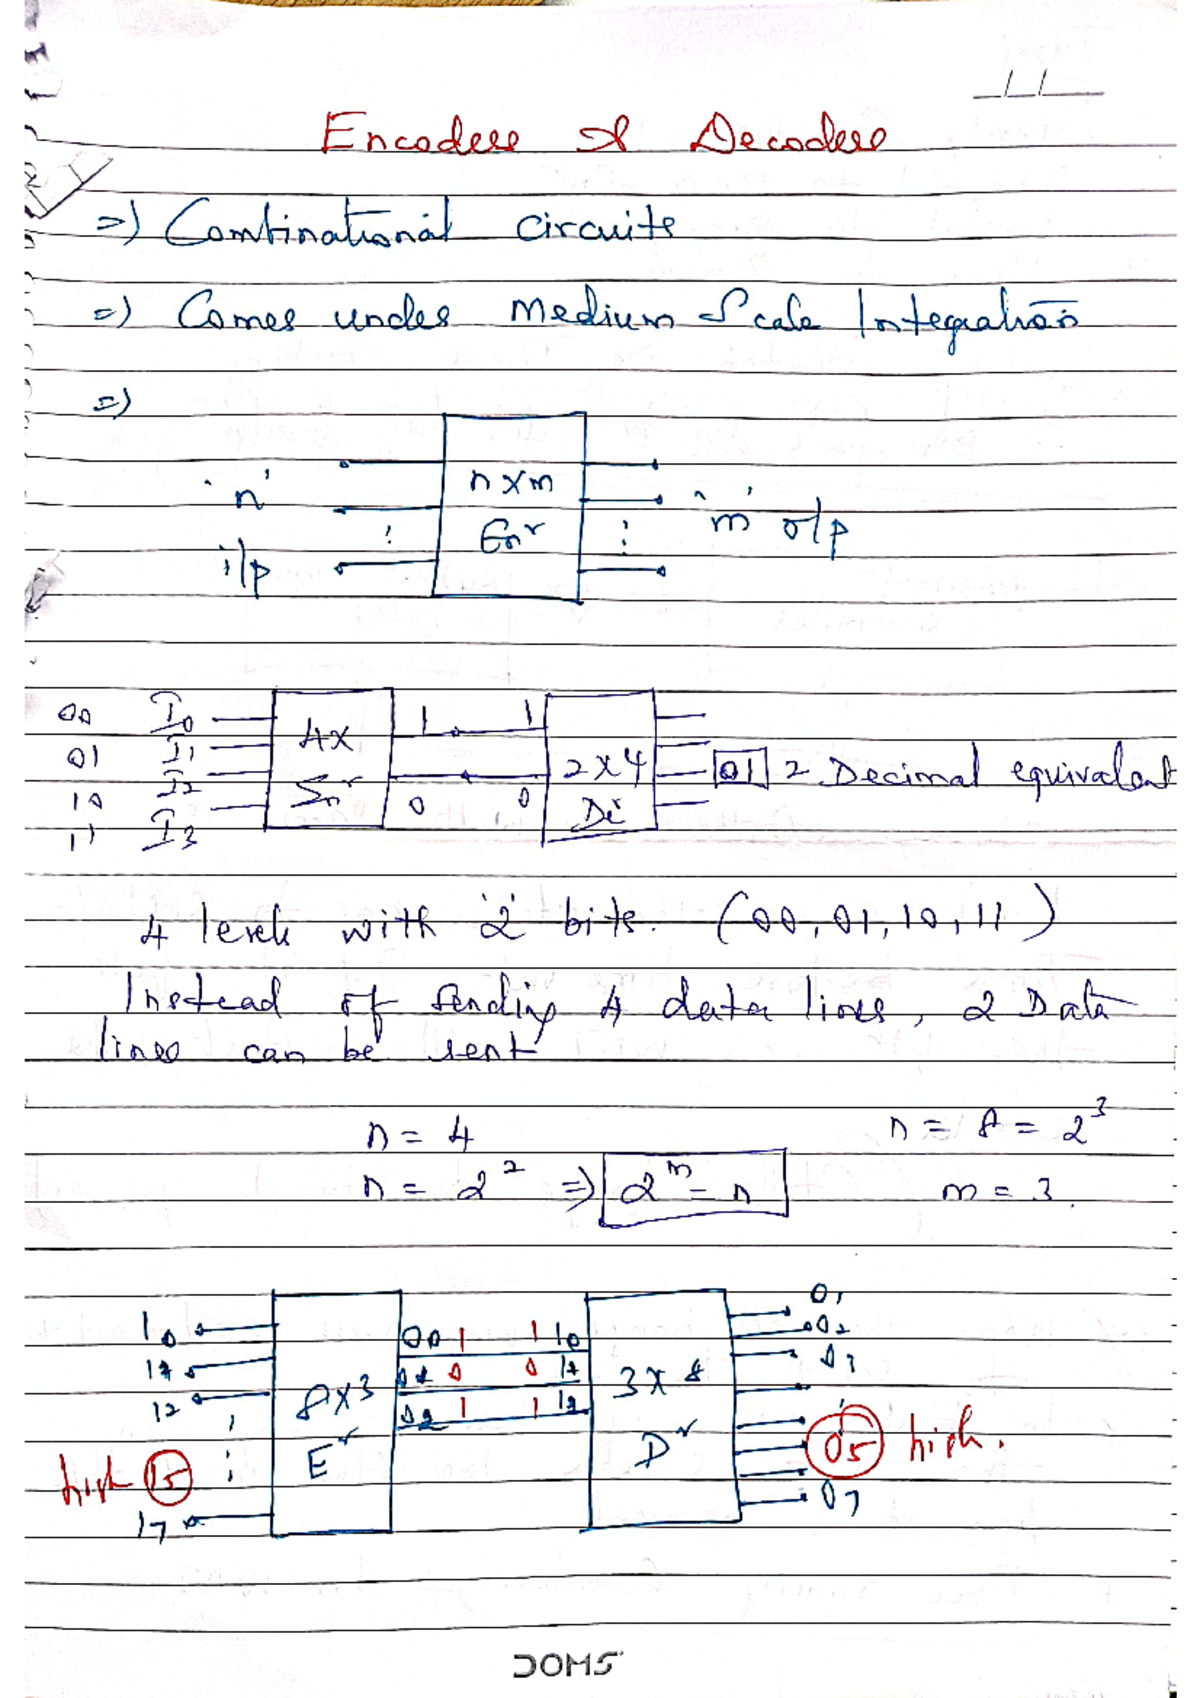 Encoders & Decoders
=) Combinational circuits
=) Comes under Medium Scale Integration
=)
'n' i/p
n x m
Enr
'm' o/p
00 I0
01 I1
10 I2
11 I3
4x
1 1
0 0
2x4
01 2 Decimal equivalent
4 levels with '2' bits. (00, 01, 10, 11)
Instead of sending 4 data lines, 2 Data
lines can be sent
n = 4 n = 8 = 2^3
n = 2^2 => 2^m = n m = 3
I0
I2
high I5
I7
8x3
Er
1 1 I0
0 0
1 1 I2
3x8
Dr
O1
O2
O3
O5 high.
O7
DOMS